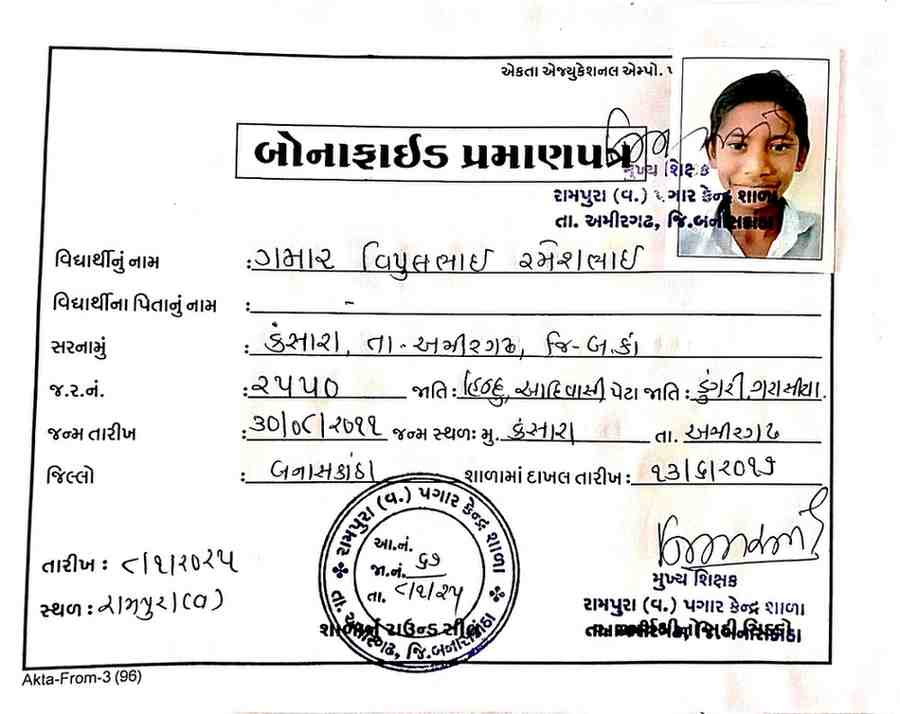 એકતા એજ્યુકેશનલ એમ્પો.
બોનાફાઈડ પ્રમાણપત્ર
મુખ્ય શિક્ષક
રામપુરા (વ.) પગાર કેન્દ્ર શાળા
તા. અમીરગઢ, જિ.બનાસકાંઠા
વિદ્યાર્થીનું નામ : ગમાર વિપુલભાઈ રમેશભાઈ
વિદ્યાર્થીના પિતાનું નામ : -
સરનામું : કંસારા, તા-અમીરગઢ, જિ-બ.કાં
જ.ર.નં. : ૨૫૫૦ જાતિ : હિન્દુ, આદિવાસી પેટા જાતિ : ડુંગરી ગરાસીયા.
જન્મ તારીખ : ૩૦/૦૮/૨૦૧૧ જન્મ સ્થળ: મુ. કંસારા તા. અમીરગઢ
જિલ્લો : બનાસકાંઠા શાળામાં દાખલ તારીખ : ૧૩/૬/૨૦૧૭
તારીખ : ૮/૧/૨૦૨૫
સ્થળ : રામપુરા(વ)
રામપુરા (વ.) પગાર કેન્દ્ર શાળા
આ.નં.
જા.નં. ૬૭
તા. ૮/૧/૨૫
તા. અમીરગઢ, જિ.બનાસકાંઠા
શાળાનું રાઉન્ડ સીલ
મુખ્ય શિક્ષક
રામપુરા (વ.) પગાર કેન્દ્ર શાળા
તા. અમીરગઢ, જિ.બનાસકાંઠા
Akta-From-3 (96)